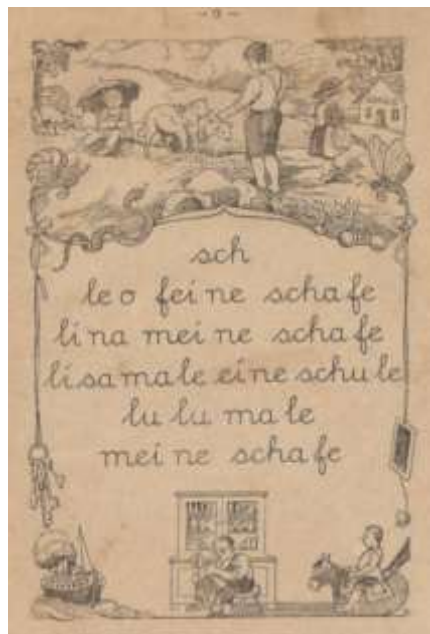 sch
le o fei ne scha fe
li na mei ne scha fe
li sa ma le ei ne schu le
lu lu ma le
mei ne scha fe